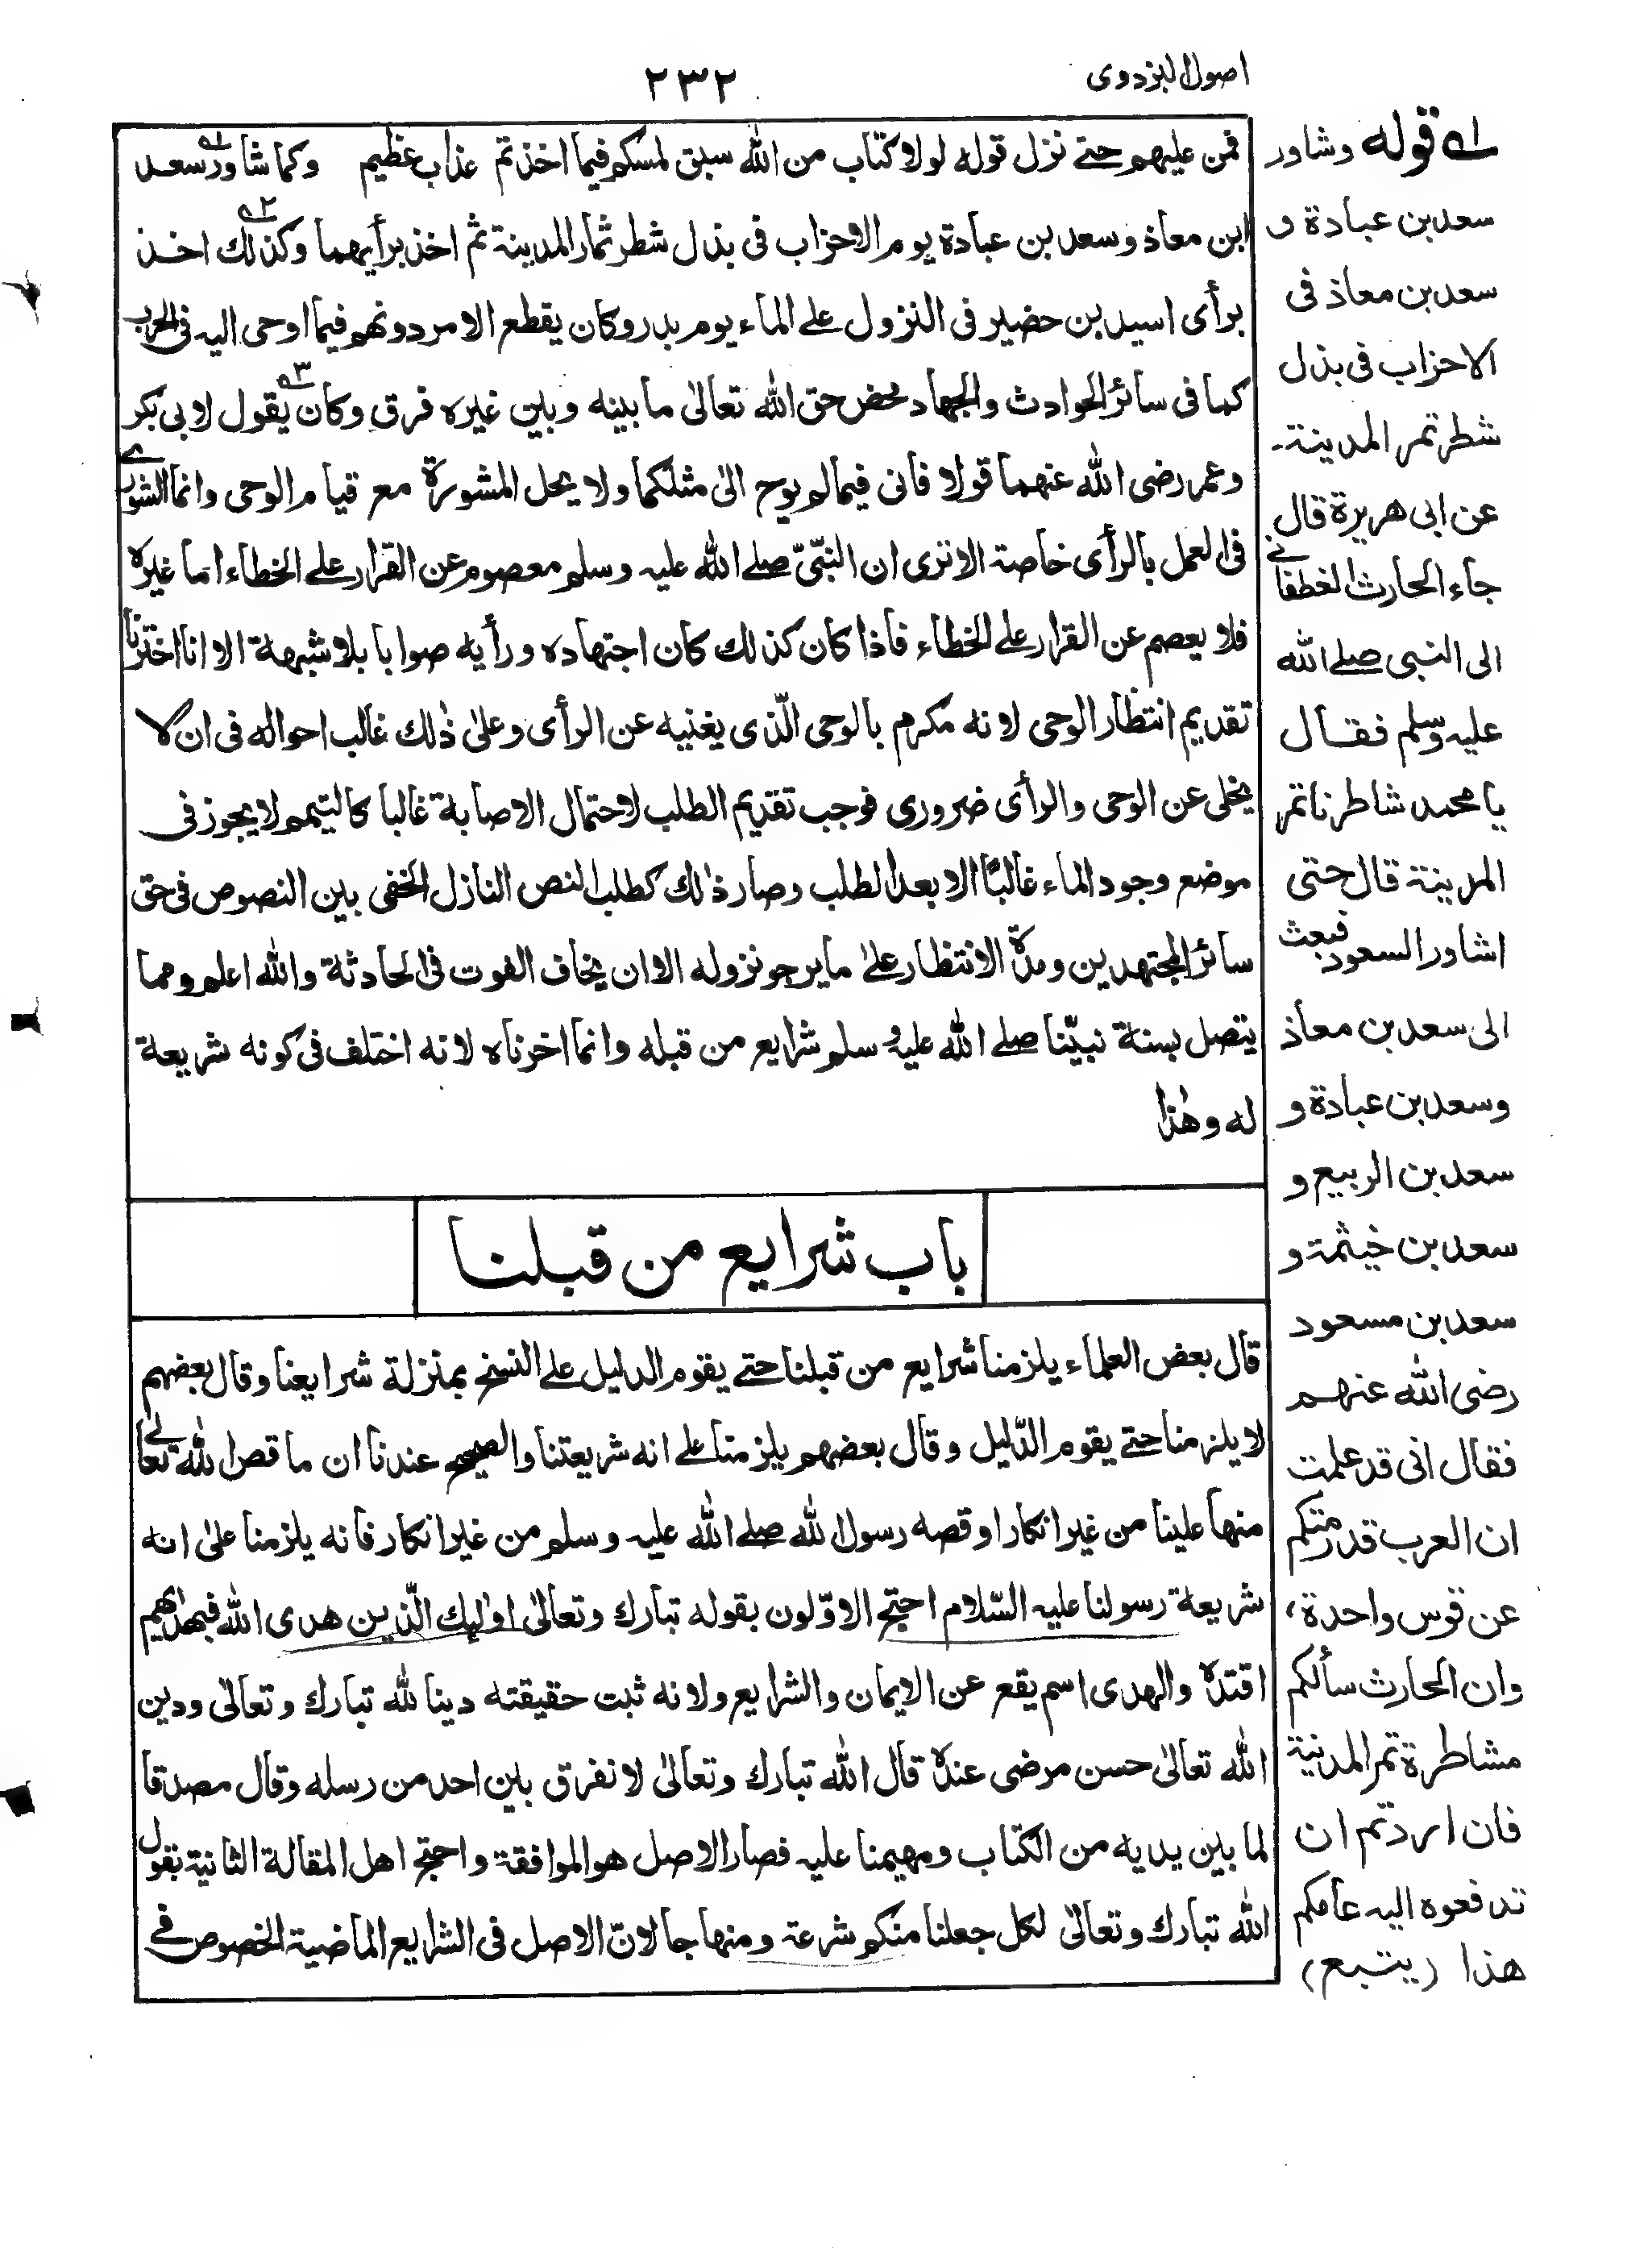 اصول البزدوی
۲۳۲
فمن علیهم حتے نزل قوله لولا کتاب من الله سبق لمسکم فیما اخذتم عذاب عظیم وکما شاور سعد
ابن معاذ وسعد بن عبادة یوم الاحزاب فی بذل شطر ثمار المدینة ثم اخذ برأیهما وکذلك اخذ
برأی اسید بن حضیر فی النزول علے الماء یوم بدر وکان یقطع الامر دونهم فیما اوحی الیه فی الحرب
کما فی سائر الحوادث والجهاد محض حق الله تعالیٰ ما بینه وبین غیره فرق وکان یقول لابی بکر
وعمر رضی الله عنهما قولا فانی فیما لم یوح الیّ مثلکما ولا یحل المشورة مع قیام الوحی وانما الشورے
فی العمل بالرأی خاصة الا تری ان النبیّ صلے الله علیه وسلم معصوم عن القرار علے الخطاء اما غیره
فلا یعصم عن القرار علے الخطاء فاذا کان کذلك کان اجتهاده ورأیه صوابا بلا شبهة الا انا اخترنا
تقدیم انتظار الوحی لانه مکرم بالوحی الّذی یغنیه عن الرأی وعلیٰ ذٰلك غالب احواله فی ان لا
یخلی عن الوحی والرأی ضروری فوجب تقدیم الطلب لاحتمال الاصابة غالبا کالتیمم لا یجوز فی
موضع وجود الماء غالبًا الا بعد الطلب وصار ذٰلك کطلب النص النازل الخفی بین النصوص فی حق
سائر المجتهدین ومدة الانتظار علیٰ ما یرجو نزوله الا ان یخاف الفوت فی الحادثة والله اعلم ومما
یتصل بسنة نبیّنا صلے الله علیه وسلم شرایع من قبله وانما اخرناه لانه اختلف فی کونه شریعة
له وهٰذا
باب شرایع من قبلنا
قال بعض العلماء یلزمنا شرایع من قبلنا حتے یقوم الدلیل علے النسخ بمنزلة شرایعنا وقال بعضهم
لا یلزمنا حتے یقوم الدّلیل وقال بعضهم یلزمنا علے انه شریعتنا والصحیح عندنا ان ما قص الله تعالےٰ
منها علینا من غیر انکار او قصه رسول الله صلے الله علیه وسلم من غیر انکار فانه یلزمنا علیٰ انه
شریعة رسولنا علیه السّلام احتج الاوّلون بقوله تبارك وتعالیٰ اولٰئك الّذین هدی الله فبهدٰهم
اقتده والهدی اسم یقع عن الایمان والشرایع ولانه ثبت حقیقته دینا لله تبارك وتعالیٰ ودین
الله تعالیٰ حسن مرضی عنده قال الله تبارك وتعالیٰ لا نفرق بین احد من رسله وقال مصدقا
لما بین یدیه من الکتاب ومهیمنا علیه فصار الاصل هو الموافقة واحتج اهل المقالة الثانیة بقول
الله تبارك وتعالیٰ لکل جعلنا منکم شرعة ومنهاجا لانّ الاصل فی الشرایع الماضیة الخصوص فے
۱؎ قوله وشاور
سعد بن عبادة و
سعد بن معاذ فی
الاحزاب فی بذل
شطر تمر المدینة۔
عن ابی هریرة قال
جاء الحارث الغطفانے
الی النبی صلے الله
علیه وسلم فقال
یا محمد شاطرنا تمر
المدینة قال حتی
اشاور السعود فبعث
الی سعد بن معاذ
وسعد بن عبادة و
سعد بن الربیع و
سعد بن خیثمة و
سعد بن مسعود
رضی الله عنهم
فقال انی قد علمت
ان العرب قد رمتکم
عن قوس واحدة،
وان الحارث سألکم
مشاطرة تمر المدنیة
فان اردتم ان
تدفعوه الیه عامکم
هذا (یتبع)